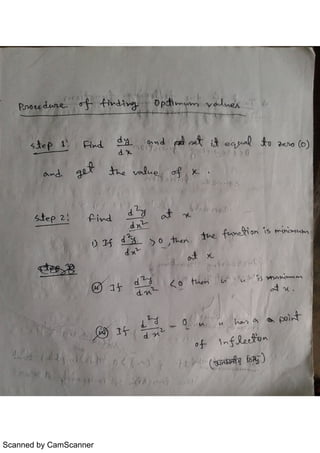 Procedure of finding Optimum values
Step 1: Find dy/dx and set it equal to zero (0)
and get the value of x.
Step 2: Find d²y/dx² at x
i) If d²y/dx² > 0, then the function is minimum
at x
ii) If d²y/dx² < 0 then " " is maximum
at x.
iii) If d²y/dx² = 0 " " has a point
of Inflection
Scanned by CamScanner